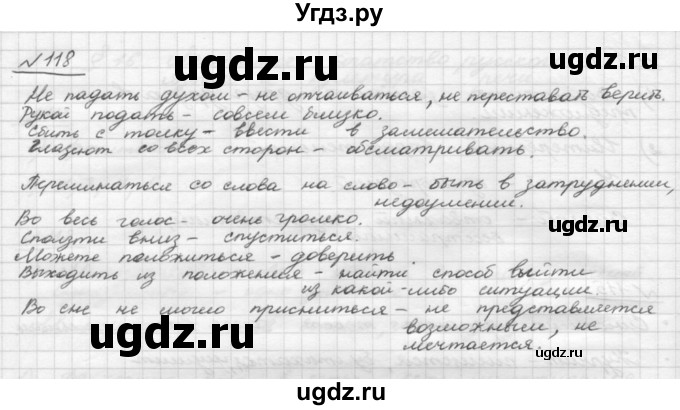 Угдз.ру
№118
Не падать духом - не отчаиваться, не переставать верить.
Рукой подать - совсем близко.
Сбить с толку - ввести в замешательство.
Глазеют со всех сторон - обсматривать.
Переминаться со слова на слово - быть в затруднении,
недоумении.
Во весь голос - очень громко.
Сползти вниз - спуститься.
Можете положиться - доверить.
Выходить из положения - найти способ выйти
из какой-либо ситуации.
Во сне не могло присниться - не представляется
возможным, не
мечтается.
ugdz.ru
ugdz.ru
ugdz.ru
ugdz.ru
ugdz.ru
ugdz.ru
ugdz.ru
ugdz.ru